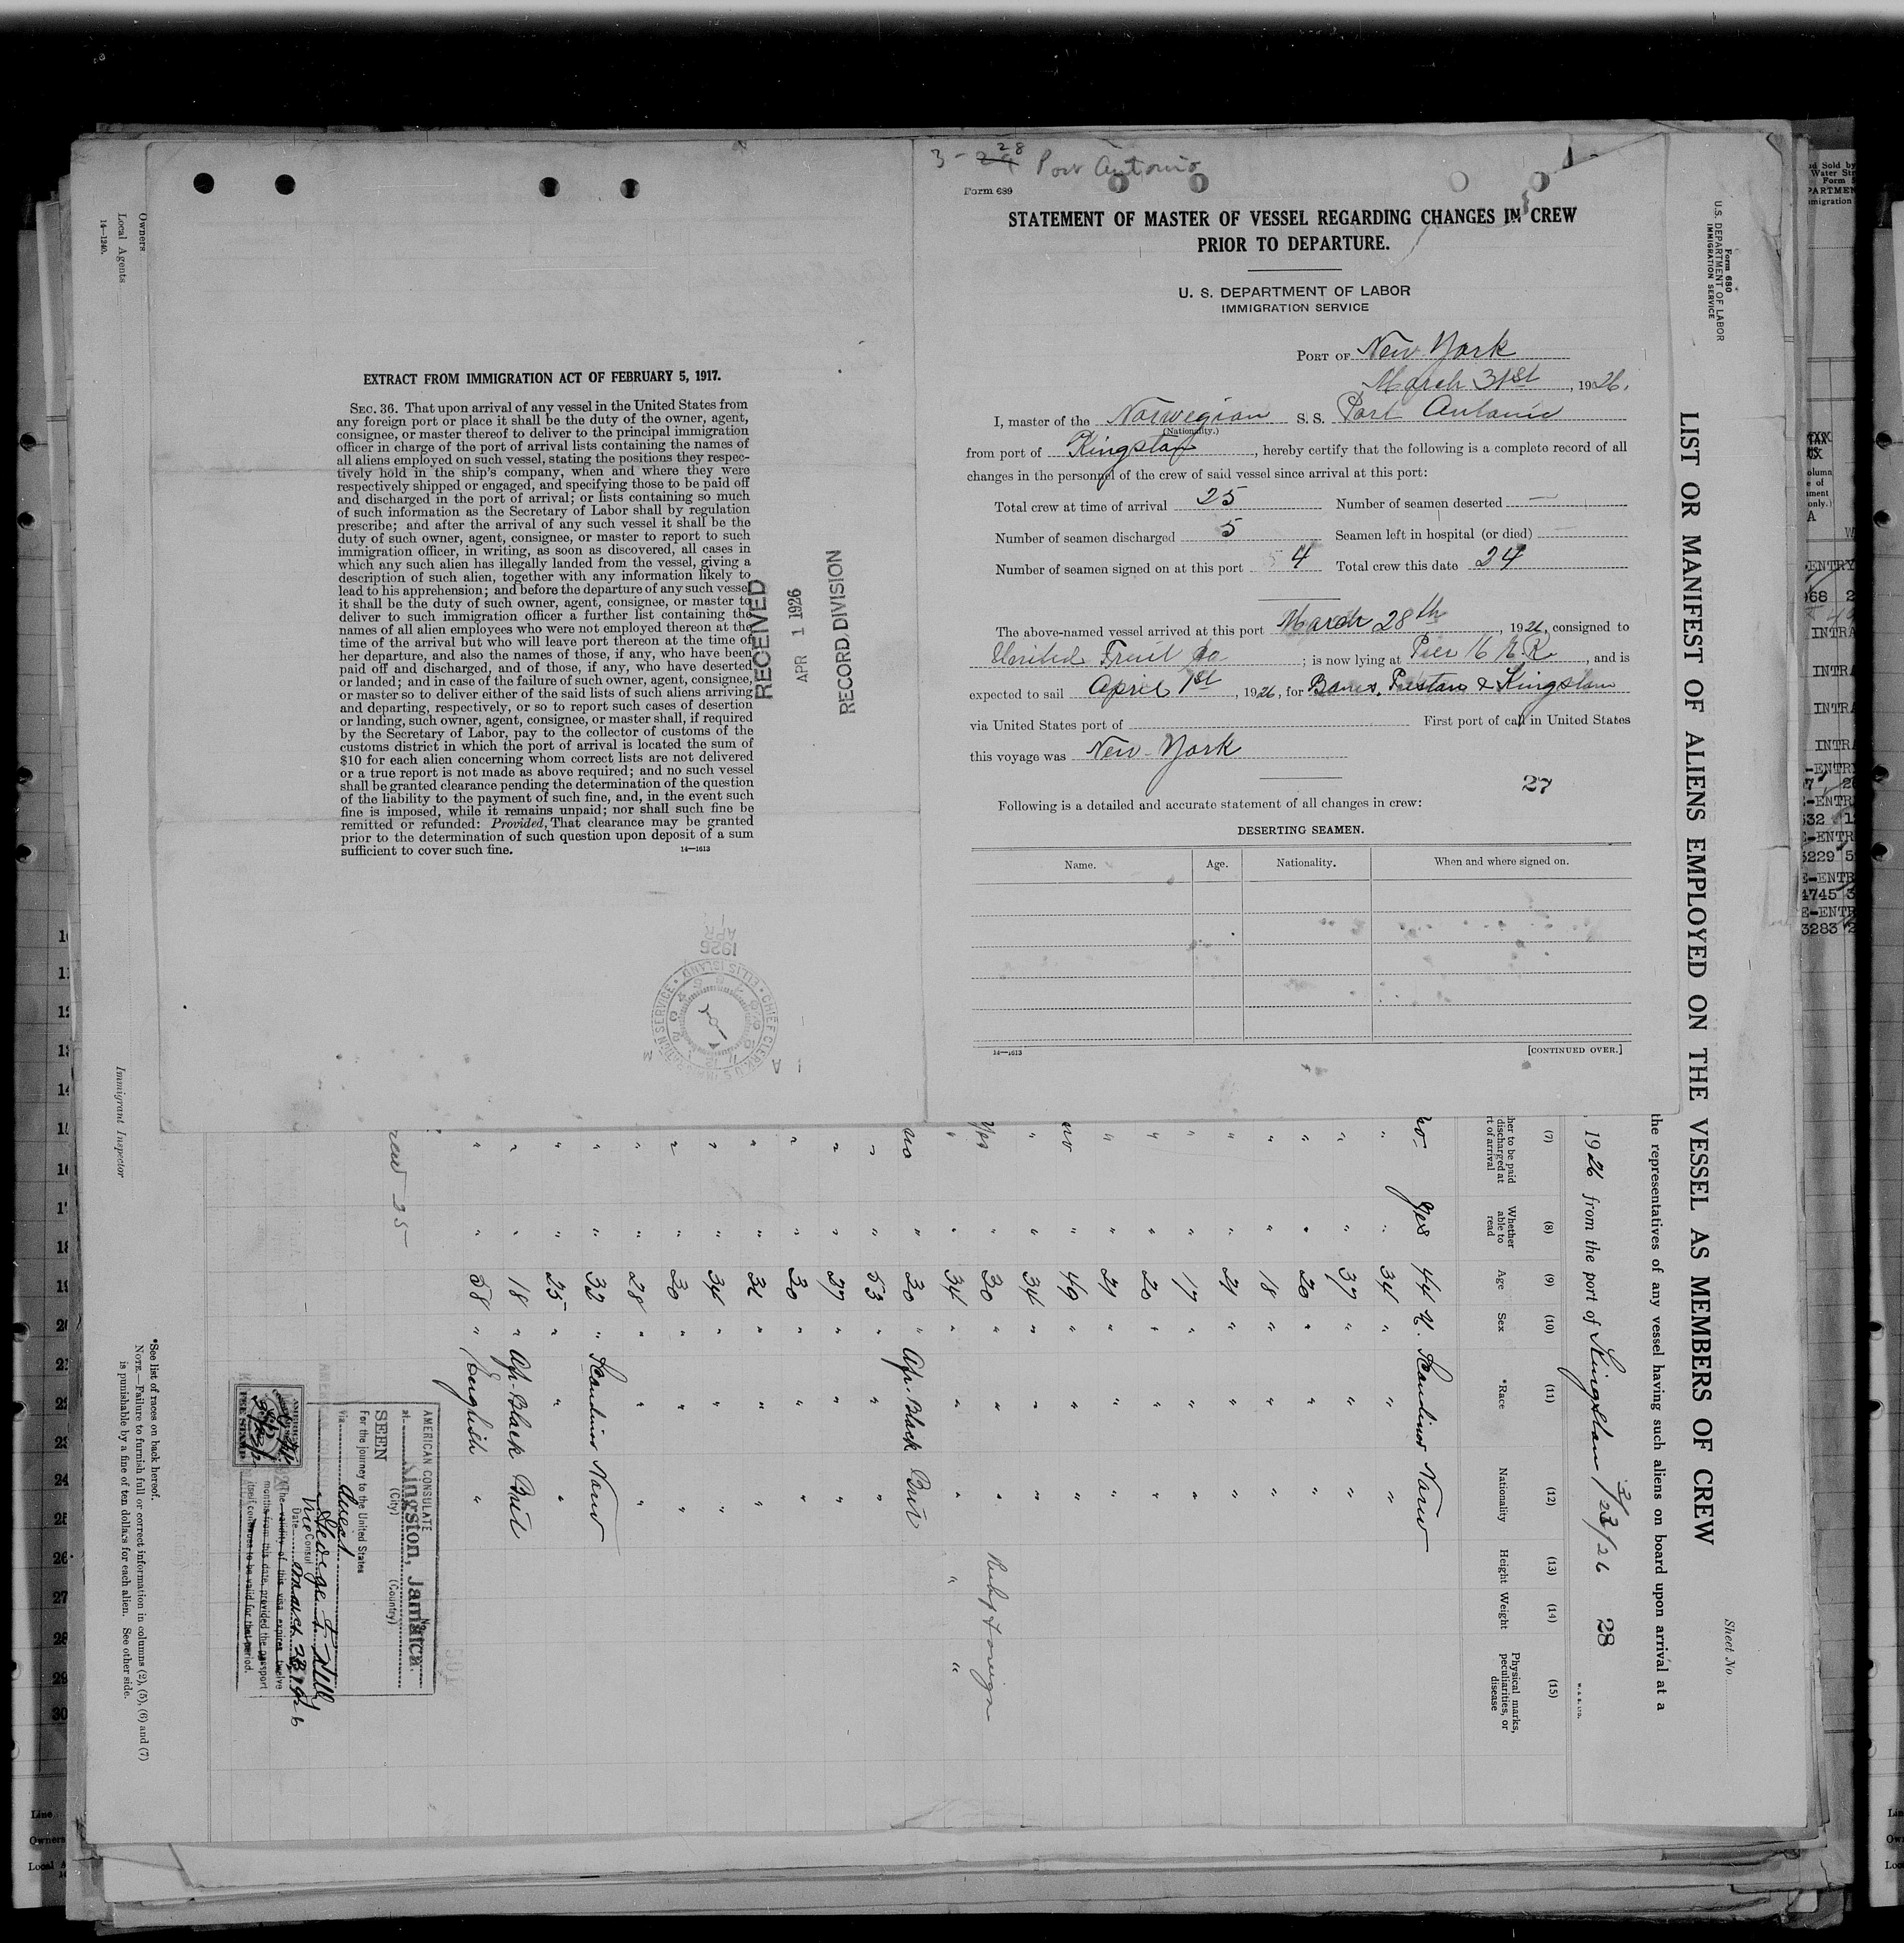 3 - 28 Port Antonio
Form 689
STATEMENT OF MASTER OF VESSEL REGARDING CHANGES IN CREW
PRIOR TO DEPARTURE.
U. S. DEPARTMENT OF LABOR
IMMIGRATION SERVICE
PORT OF New York
March 31st, 1926.
I, master of the Norwegian S. S. Port Antonio
(Nationality.)
from port of Kingston, hereby certify that the following is a complete record of all
changes in the personnel of the crew of said vessel since arrival at this port:
Total crew at time of arrival 25 Number of seamen deserted —
Number of seamen discharged 5 Seamen left in hospital (or died) —
Number of seamen signed on at this port 4 Total crew this date 24
The above-named vessel arrived at this port March 28th, 1926, consigned to
United Fruit Co; is now lying at Pier 16 E R., and is
expected to sail April 1st, 1926, for Banes, Preston & Kingston
via United States port of First port of call in United States
this voyage was New York
27
Following is a detailed and accurate statement of all changes in crew:
DESERTING SEAMEN.
Name. Age. Nationality. When and where signed on.
14—1613
[CONTINUED OVER.]
EXTRACT FROM IMMIGRATION ACT OF FEBRUARY 5, 1917.
SEC. 36. That upon arrival of any vessel in the United States from
any foreign port or place it shall be the duty of the owner, agent,
consignee, or master thereof to deliver to the principal immigration
officer in charge of the port of arrival lists containing the names of
all aliens employed on such vessel, stating the positions they respec-
tively hold in the ship's company, when and where they were
respectively shipped or engaged, and specifying those to be paid off
and discharged in the port of arrival; or lists containing so much
of such information as the Secretary of Labor shall by regulation
prescribe; and after the arrival of any such vessel it shall be the
duty of such owner, agent, consignee, or master to report to such
immigration officer, in writing, as soon as discovered, all cases in
which any such alien has illegally landed from the vessel, giving a
description of such alien, together with any information likely to
lead to his apprehension; and before the departure of any such vessel
it shall be the duty of such owner, agent, consignee, or master to
deliver to such immigration officer a further list containing the
names of all alien employees who were not employed thereon at the
time of the arrival but who will leave port thereon at the time of
her departure, and also the names of those, if any, who have been
paid off and discharged, and of those, if any, who have deserted
or landed; and in case of the failure of such owner, agent, consignee,
or master so to deliver either of the said lists of such aliens arriving
and departing, respectively, or so to report such cases of desertion
or landing, such owner, agent, consignee, or master shall, if required
by the Secretary of Labor, pay to the collector of customs of the
customs district in which the port of arrival is located the sum of
$10 for each alien concerning whom correct lists are not delivered
or a true report is not made as above required; and no such vessel
shall be granted clearance pending the determination of the question
of the liability to the payment of such fine, and, in the event such
fine is imposed, while it remains unpaid; nor shall such fine be
remitted or refunded: Provided, That clearance may be granted
prior to the determination of such question upon deposit of a sum
sufficient to cover such fine.
14—1613
RECEIVED
APR 1 1926
RECORD DIVISION
APR
1926
CHIEF CLERK, U.S. IMMIGRATION SERVICE • ELLIS ISLAND
Form 680
U. S. DEPARTMENT OF LABOR
IMMIGRATION SERVICE
Sheet No.
LIST OR MANIFEST OF ALIENS EMPLOYED ON THE VESSEL AS MEMBERS OF CREW
the representatives of any vessel having such aliens on board upon arrival at a
, 1926 from the port of Kingston 3/23/26 28
(7) (8) (9) (10) (11) (12) (13) (14) (15)
her to be paid
discharged at
rt of arrival
Whether
able to
read
Age
Sex
*Race
Nationality
Height
Weight
Physical marks,
peculiarities, or
disease
no yes 44 M. Scandinav Norw
" " 34 " " "
" " 37 " " "
" " 20 " " "
" " 18 " " "
" " 21 " " "
" " 17 " " "
" " 20 " " "
" " 21 " " "
no " 49 " " "
" " 34 " " "
yes " 30 " " "
" " 34 " " " " "
no " 30 " Afr. Black Brit
" " 53 " " "
" " 27 " " "
" " 30 " " "
" " 32 " " "
" " 34 " " "
" " 30 " " "
" " 28 " " "
" " 32 " Scandinav Norw
" " 25 " " "
" " 18 " Afr. Black Brit
" " 58 " English "
25
AMERICAN CONSULATE
at Kingston, Jamaica.
(City) (Country)
SEEN
For the journey to the United States
via direct
Vice Consul
Date March 23, 1926
The validity of this visa expires twelve
months from this date, provided the passport
itself continues to be valid for that period.
FEE STAMP
*See list of races on back hereof.
NOTE.—Failure to furnish full or correct information in columns (2), (5), (6) and (7)
is punishable by a fine of ten dollars for each alien. See other side.
Immigrant Inspector
Owners
Local Agents
14—1240.